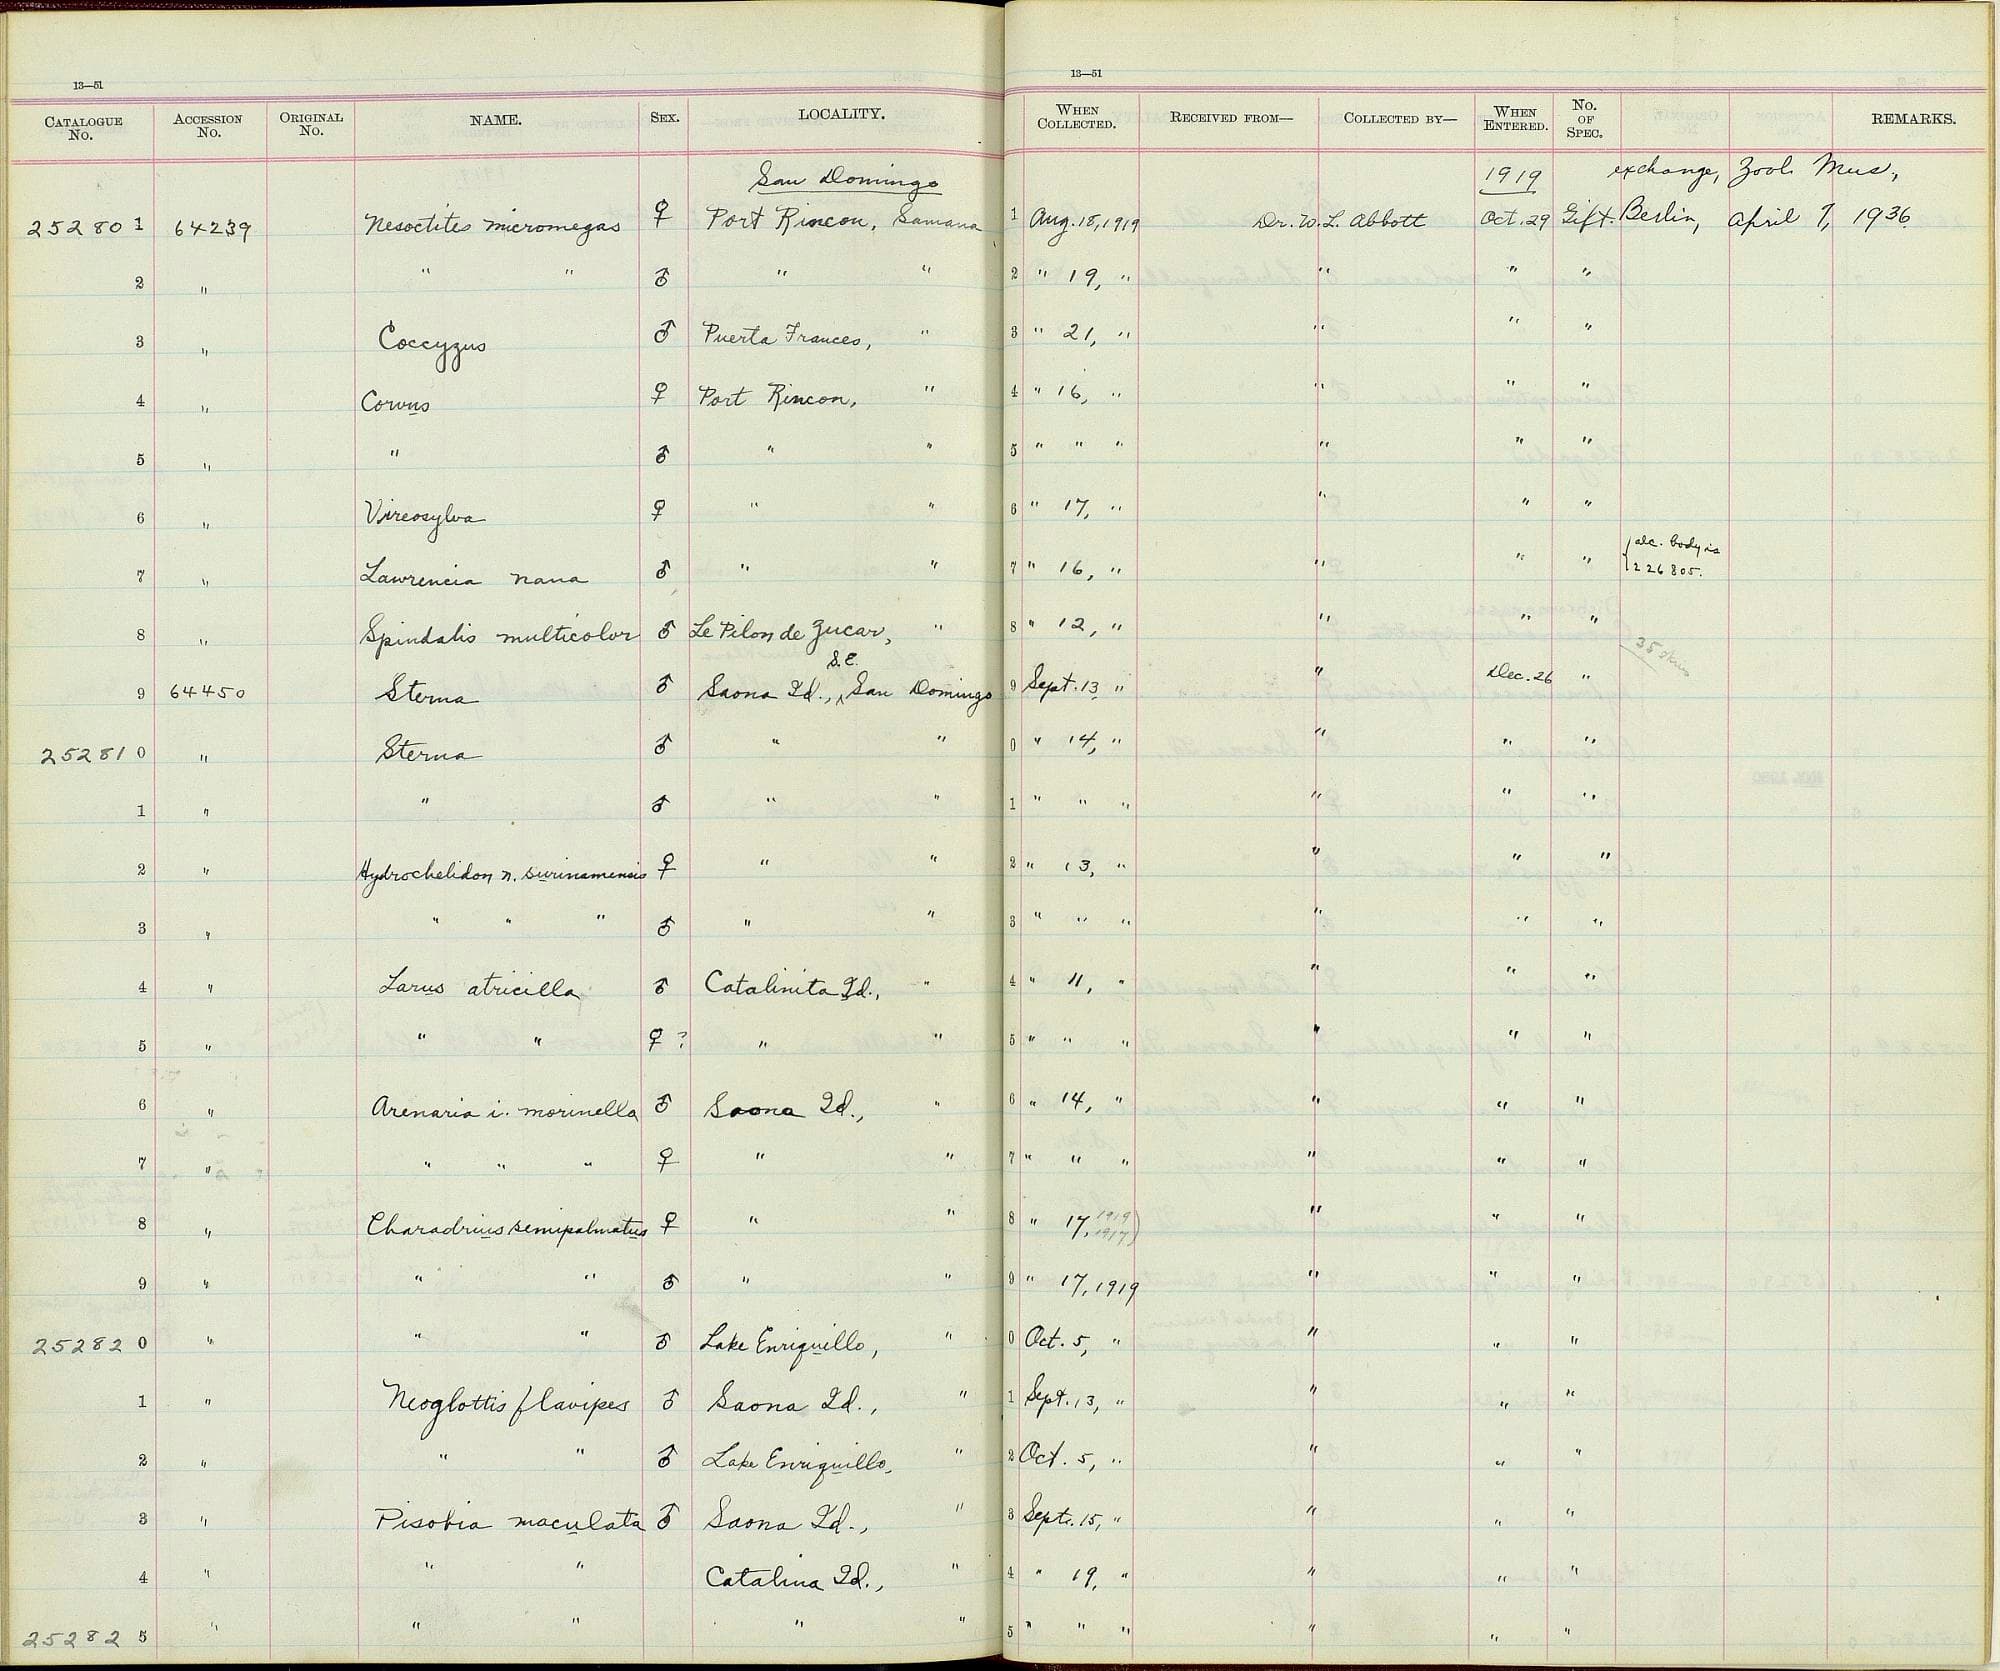 13—51 13—51
CATALOGUE NO. ACCESSION NO. ORIGINAL NO. NAME. SEX. LOCALITY. WHEN COLLECTED. RECEIVED FROM— COLLECTED BY— WHEN ENTERED. NO. OF SPEC. REMARKS.
San Domingo 1919 exchange, Zool. Mus.,
252801 64239 Nesoctites micromegas ♀ Port Rincon, Samana 1 Aug. 18, 1919 Dr. W. L. Abbott Oct. 29 Gift. Berlin, April 7, 1936
2 " " " ♂ " " 2 " 19, " " " "
3 " Coccyzus ♂ Puerta Frances, " 3 " 21, " " " "
4 " Corvus ♀ Port Rincon, " 4 " 16, " " " "
5 " " ♂ " " 5 " " " " " "
6 " Vireosylva ♀ " " 6 " 17, " " " "
7 " Lawrencia nana ♂ " " 7 " 16, " " " " { alc. body is 226805.
8 " Spindalis multicolor ♂ Le Pilon de Zucar, " 8 " 12, " " " "
35 skins
S.E.
9 64450 Sterna ♂ Saona Id., ^ San Domingo 9 Sept. 13, " " Dec. 26 "
252810 " Sterna ♂ " " 0 " 14, " " " "
1 " " ♂ " " 1 " " " " " "
2 " Hydrochelidon n. surinamensis ♀ " " 2 " 13, " " " "
3 " " " " ♂ " " 3 " " " " " "
4 " Larus atricilla ♂ Catalinita Id., " 4 " 11, " " " "
5 " " " ♀? " " 5 " " " " " "
6 " Arenaria i. morinella ♂ Saona Id., " 6 " 14, " " " "
7 " " " " ♀ " " 7 " " " " " "
8 " Charadrius semipalmatus ♀ " " 8 " 17, 1919 1917) " " "
9 " " " ♂ " " 9 " 17, 1919 " " "
252820 " " " ♂ Lake Enriquillo, " 0 Oct. 5, " " " "
1 " Neoglottis flavipes ♂ Saona Id., " 1 Sept. 13, " " " "
2 " " " ♂ Lake Enriquillo, " 2 Oct. 5, " " " "
3 " Pisobia maculata ♂ Saona Id., " 3 Sept. 15, " " " "
4 " " " Catalina Id., " 4 " 19, " " " "
252825 " " " " " 5 " " " " " "